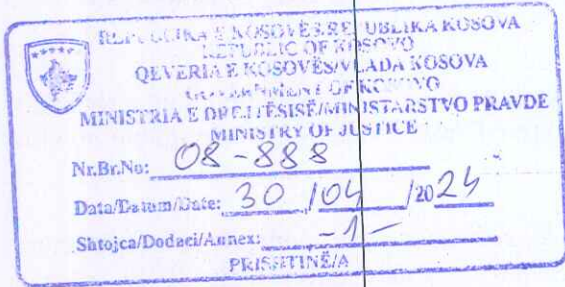 REPUBLIKA E KOSOVËS/REPUBLIKA KOSOVA
REPUBLIC OF KOSOVO
QEVERIA E KOSOVËS/VLADA KOSOVA
GOVERNMENT OF KOSOVO
MINISTRIA E DREJTËSISË/MINISTARSTVO PRAVDE
MINISTRY OF JUSTICE
Nr.Br.No: 08-888
Data/Datum/Date: 30/04/2024
Shtojca/Dodaci/Annex: -1-
PRISHTINË/A